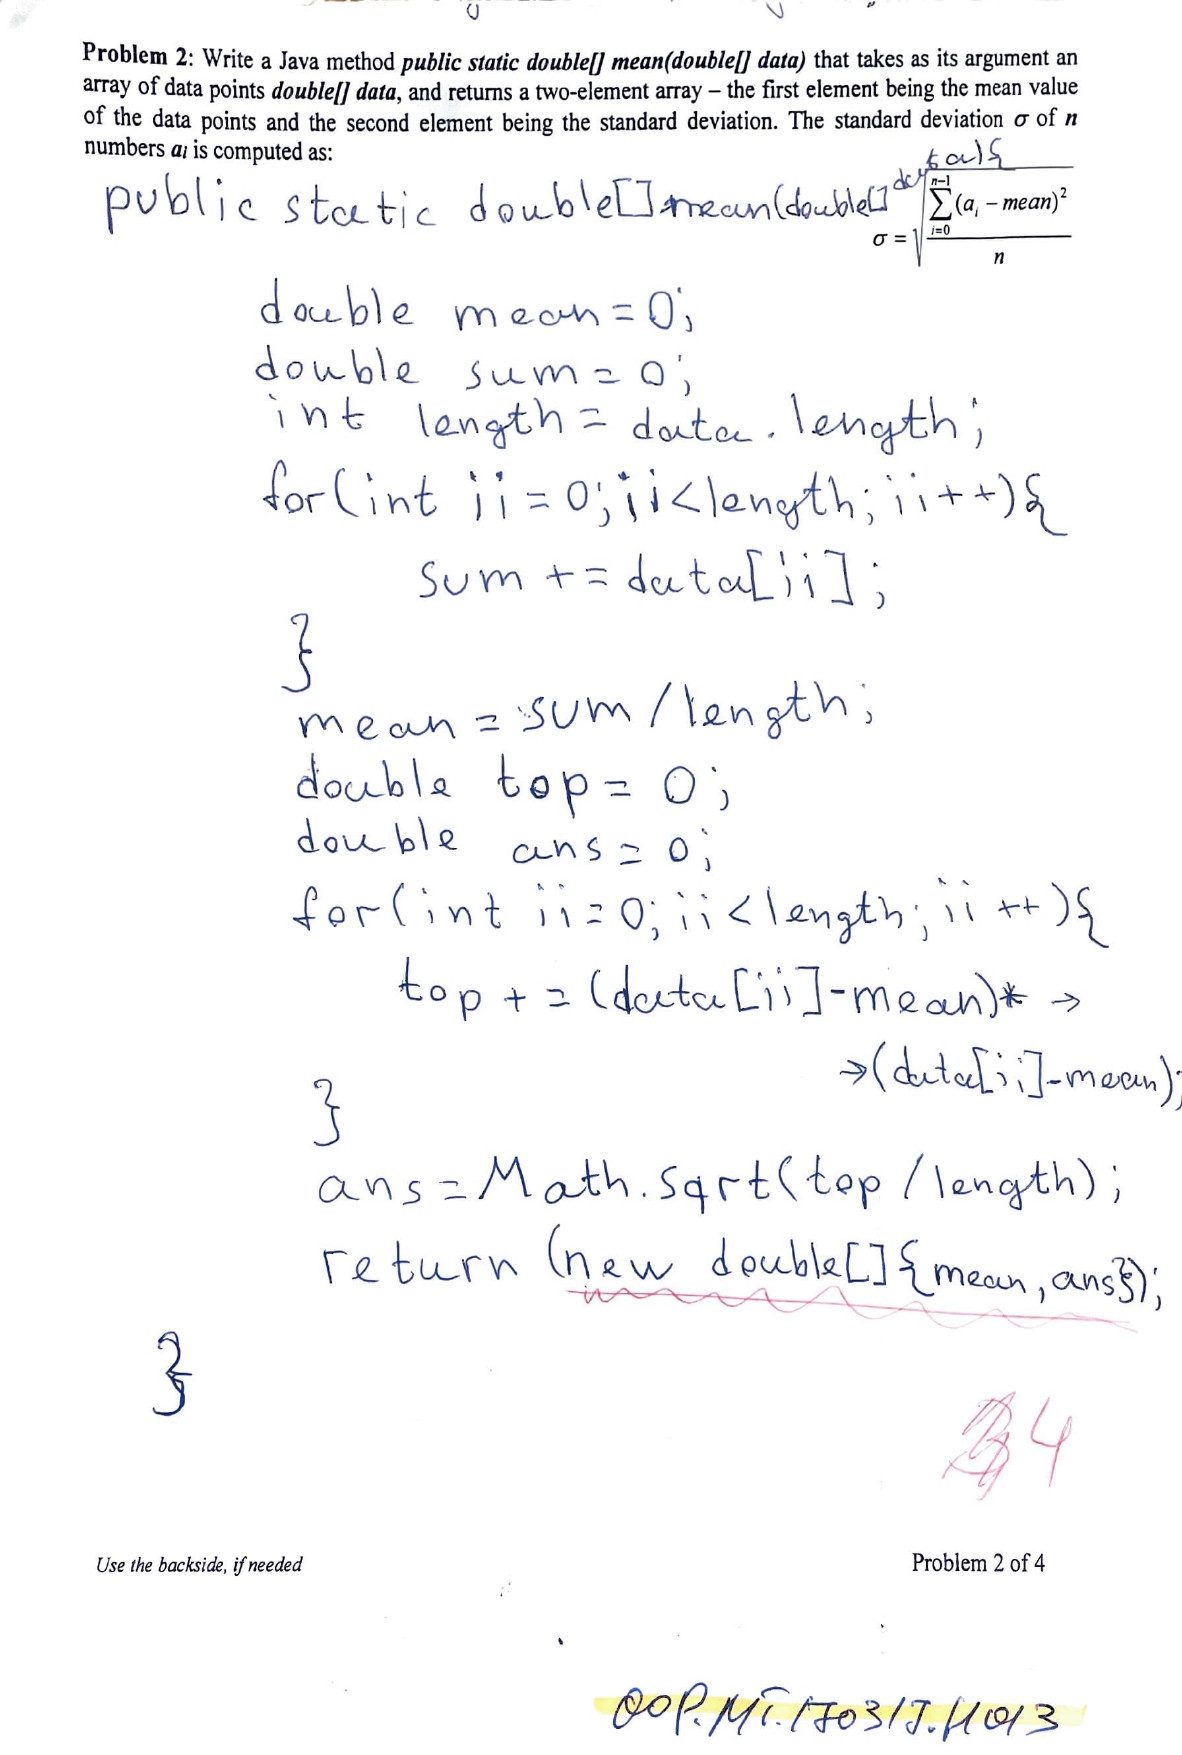 Problem 2: Write a Java method public static double[] mean(double[] data) that takes as its argument an
array of data points double[] data, and returns a two-element array – the first element being the mean value
of the data points and the second element being the standard deviation. The standard deviation σ of n
numbers aᵢ is computed as:
public static double[] mean(double[] data){
σ = √(∑(aᵢ – mean)² / n)
n–1
i=0
double mean = 0;
double sum = 0;
int length = data.length;
for(int ii = 0; ii<length; ii++){
sum += data[ii];
}
mean = sum / length;
double top = 0;
double ans = 0;
for(int ii = 0; ii < length; ii ++){
top += (data[ii]-mean)* →
→(data[ii]-mean);
}
ans = Math.sqrt(top / length);
return (new double[]{mean, ans});
}
4
Use the backside, if needed
Problem 2 of 4